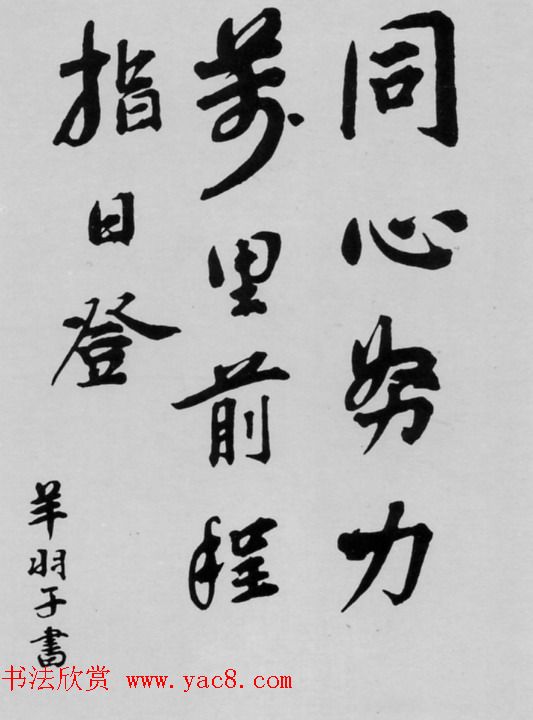 同心努力
萬里前程
指日登
羊羽子書
书法欣赏 www.yac8.com